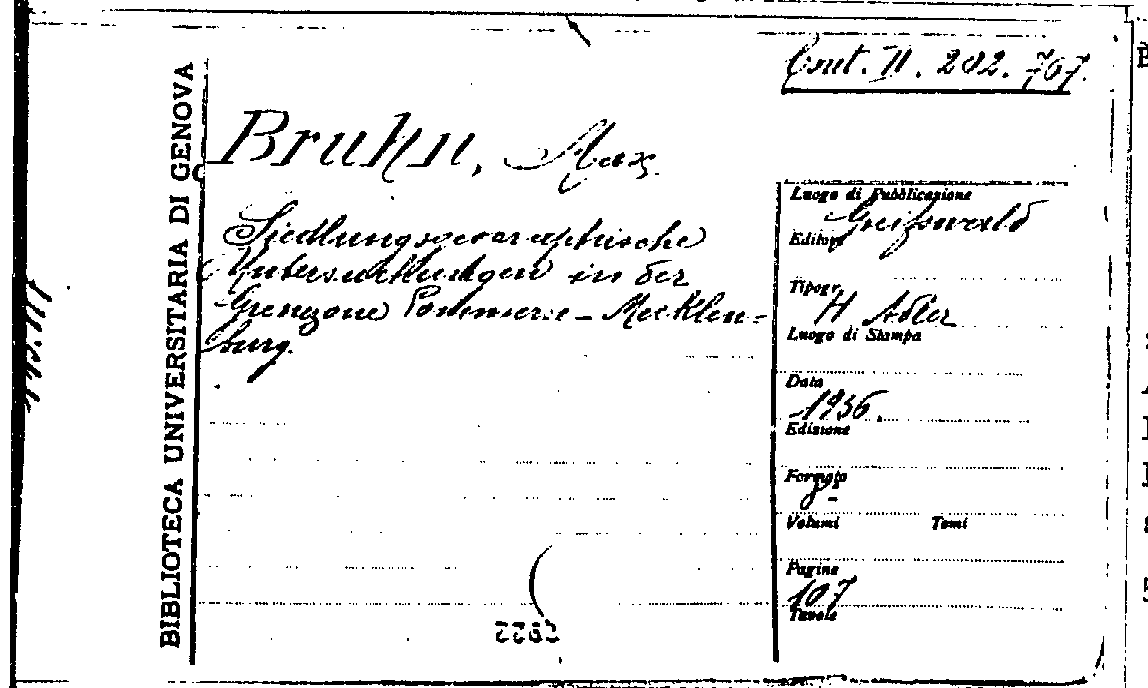 BIBLIOTECA UNIVERSITARIA DI GENOVA
Cont. II. 202. 707.
Bruhn, Max
Siedlungsgeographische
Untersuchungen in der
Grenzone Pommern-Mecklen=
burg.
Luogo di Pubblicazione
Greifswald
Editore
Tipogr.
H Adler
Luogo di Stampa
Data
1936.
Edizione
Formato
8°
Volumi Tomi
Pagine
107
Tavole